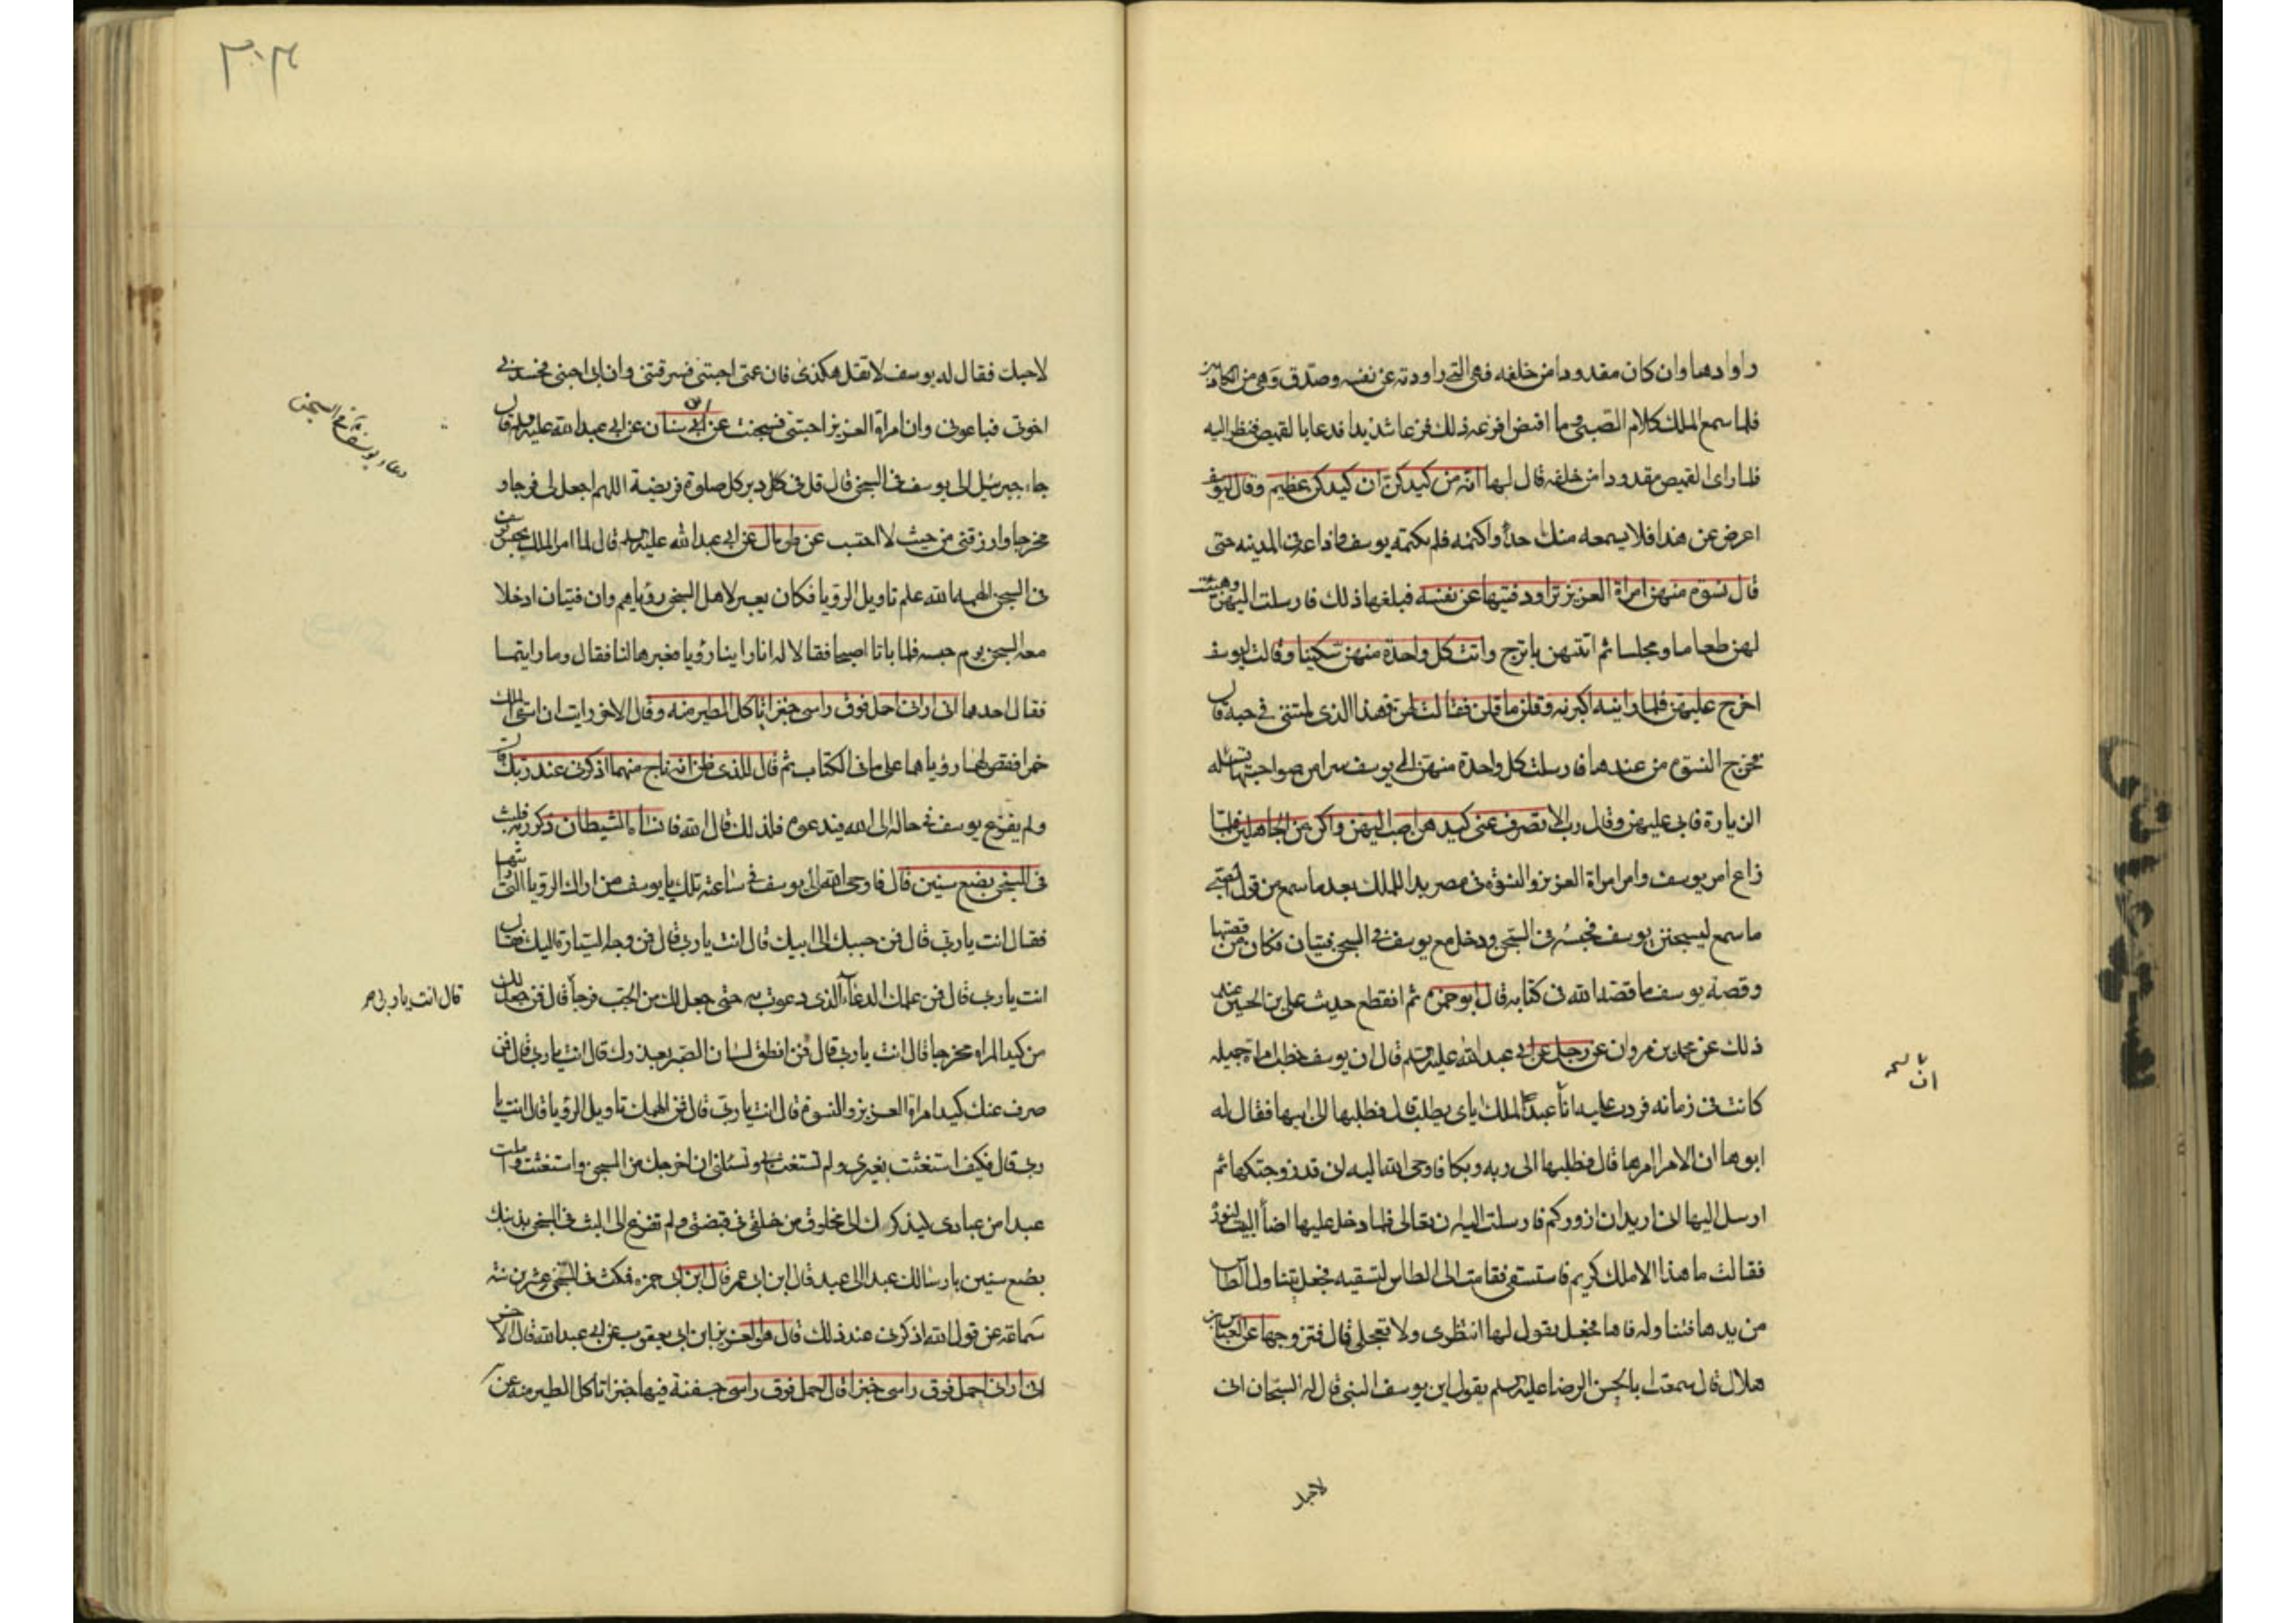 راودها وان كان مقدودا من خلفه فهى التى راودته عن نفسه وصدق وهى من الكاذبين
فلما سمع الملك كلام الصبى وما اقتص افزعه ذلك فزعا شديدا فدعا بالقميص فنظر اليه
فلما راى القميص مقدودا من خلفه قال لها انه من كيدكن ان كيدكن عظيم وقال ليوسف
اعرض عن هذا فلا يسمعه منك احدا واكتمه فلم يكتمه يوسف واذاعه فى المدينه حتى
قال نسوة منهن امراة العزيز تراود فتيها عن نفسه فبلغها ذلك فارسلت اليهن وهيئت
لهن طعاما ومجلسا ثم اتتهن باترج واتت كل واحدة منهن سكينا وقالت ليوسف
اخرج عليهن فلما راينه اكبرنه وقلن ما قلن فقالت لهن فهذا الذى لمتننى فى حبه قال
فخرج النسوة من عندها فارسلت كل واحدة منهن الى يوسف سرا من صواحبها تسئله
الزيارة فابى عليهن وقال رب الا تصرف عنى كيدهن اصب اليهن واكن من الجاهلين فلما
ذاع امر يوسف وامر امراة العزيز والنسوة فى مصر بدا للملك بعد ما سمع من قول الصبى
ما سمع ليسجنن يوسف فحبسه فى السجن ودخل مع يوسف فى السجن فتيان فكان من قصتهما
وقصة يوسف ما قصه الله فى كتابه قال ابو حمزة ثم انقطع حديث على بن الحسين عند
ذلك عن محمد بن مروان عن رجل عن ابى عبد الله عليه السلم قال ان يوسف خطب امراة جميله
كانت فى زمانه فردت عليه انا عبد الملك اياى يطلب قال فطلبها الى ابيها فقال له
ابوها ان الامر امرها قال فطلبها الى ربه وبكا فاوحى الله اليه انى قد زوجتكها ثم
ارسل اليها انى اريد ان ازوركم فارسلت اليه ان تعالى فلما دخل عليها اضاء البيت لنوره
فقالت ما هذا الا ملك كريم فاستسقى فقامت الى الطاس لتسقيه فجعل يتناول الطاس
من يدها فتناوله فاها فجعل يقول لها انتظرى ولا تعجلى قال فتزوجها عن العباس بن
هلال قال سمعت ابا الحسن الرضا عليه السلم يقول ان يوسف النبى قال له السجان انى
لاحبك
لاحبك فقال له يوسف لا تقل هكذى فان عمتى احبتنى فسرقتنى وان ابى احبنى فحسدنى
اخوتى فباعونى وان امراة العزيز احبتنى فسجنت عن ابى سنان عن ابى عبد الله عليه السلم قال
جاء جبرئيل الى يوسف فى السجن قال قل فى كل دبر كل صلوة فريضة اللهم اجعل لى فرجا و
مخرجا وارزقنى من حيث لا احتسب عن طربال عن ابى عبد الله عليه السلم قال لما امر الملك بحبس يوسف
فى السجن الهمه الله علم تاويل الرؤيا فكان يعبر لاهل السجن رؤياهم وان فتيان ادخلا
معه السجن يوم حبسه فلما باتا اصبحا فقالا له انا راينا رؤيا فعبرها لنا فقال وما رايتما
فقال احدهما انى ارانى احمل فوق راسى خبزا تاكل الطير منه وقال الاخر رايت ان اسقى الملك
خمرا فقص لهما رؤياهما على ما فى الكتاب ثم قال للذى ظن انه ناج منهما اذكرنى عند ربك قال
ولم يفزع يوسف فى حاله الى الله فيدعوه فلذلك قال الله فانساه الشيطان ذكر ربه فلبث
فى السجن بضع سنين قال فاوحى الله الى يوسف فى ساعته تلك يا يوسف من اراك الرؤيا التى رايتها
فقال انت يا ربى قال فمن حببك الى ابيك قال انت يا ربى قال فمن وجه السيارة اليك فقال
انت يا ربى قال فمن علمك الدعاء الذى دعوت به حتى جعل لك من الجب فرجا قال فمن جعل لك
من كيد المراة مخرجا قال انت يا ربى قال فمن انطق لسان الصبى بعذرك قال انت يا ربى قال فمن
صرف عنك كيد امراة العزيز والنسوة قال انت يا ربى قال فمن الهمك تاويل الرؤيا قال انت يا
ربى قال فكيف استغثت بغيرى ولم تستغث بى وتسئلنى ان اخرجك من السجن واستغثت واملت
عبدا من عبادى ليذكرك الى مخلوق من خلقى فى قبضتى ولم تفزع الى البث فى السجن بذنبك
بضع سنين بارسالك عبدا الى عبد قال ابن ابى عمير قال ابن ابى حمزه فمكث فى السجن عشرين سنة
سماعة عن قول الله اذكرنى عند ربك قال هو العزيز ابن ابى يعفور عن ابى عبد الله قال الاخر
انى ارانى احمل فوق راسى خبزا قال احمل فوق راسى جفنة فيها خبز تاكل الطير منه عن
دعاء يوسف فى السجن
قال انت يا ربى صح